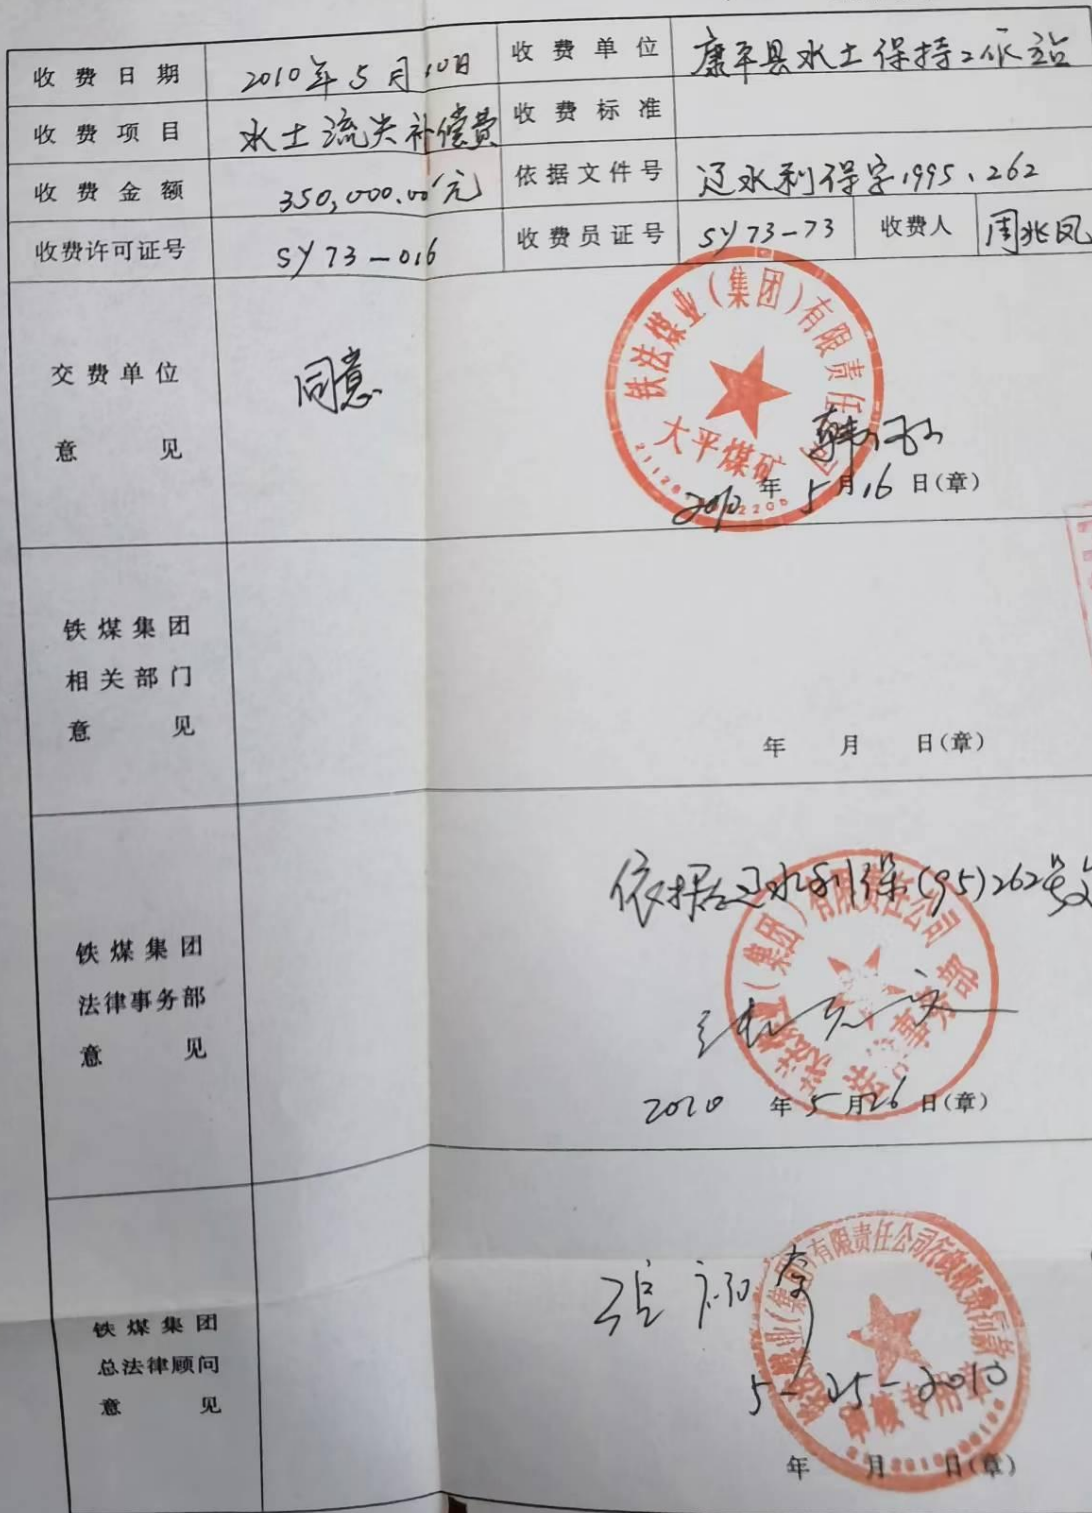 收费日期 2010年5月10日 收费单位 康平县水土保持工作站
收费项目 水土流失补偿费 收费标准
收费金额 350,000.00元 依据文件号 辽水利保字1995、262
收费许可证号 SY73-016 收费员证号 SY73-73 收费人 周兆凤
交费单位
意见
同意
铁法煤业(集团)有限责任公司
大平煤矿
2010年5月16日(章)
铁煤集团
相关部门
意见
年 月 日(章)
铁煤集团
法律事务部
意见
依据辽水利保(95)262号文
铁法煤业(集团)有限责任公司
法律事务部
2010年5月26日(章)
铁煤集团
总法律顾问
意见
铁法煤业(集团)有限责任公司行政收费付款
审核专用章
5-25-2010
年 月 日(章)